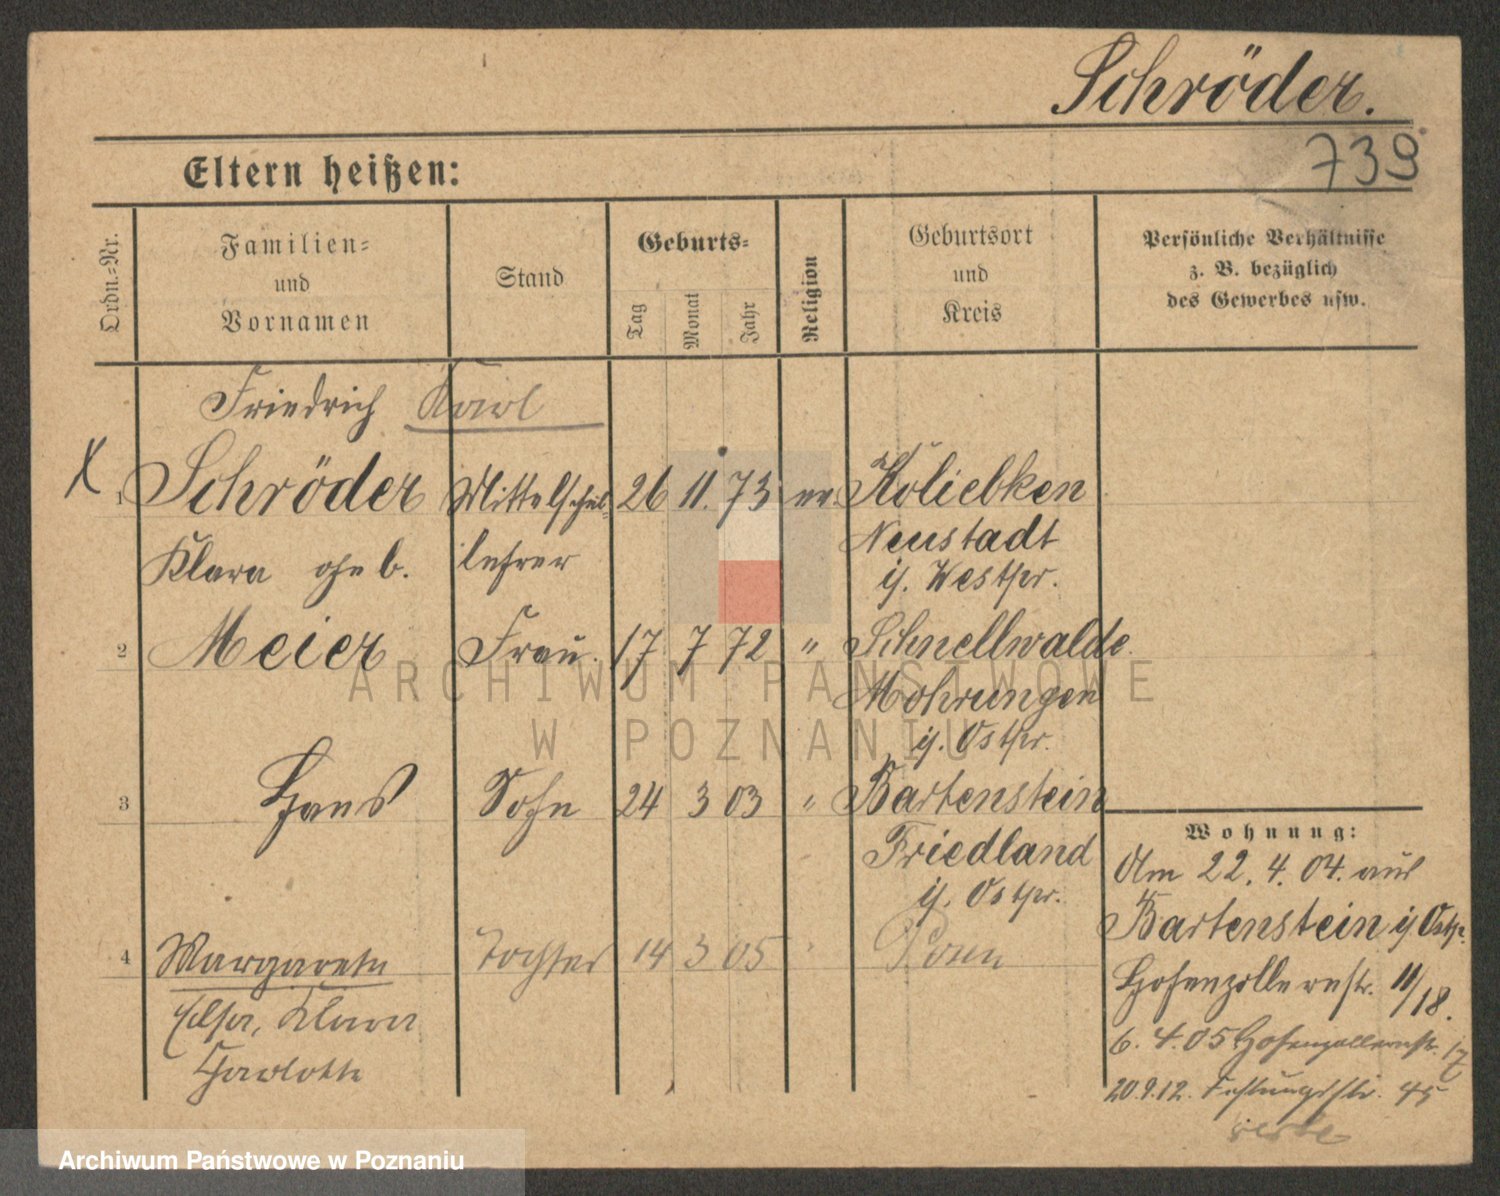 Schröder.
739
Eltern heißen:
Ordn.=Nr.
Familien=
und
Vornamen
Stand
Geburts=
Tag
Monat
Jahr
Religion
Geburtsort
und
Kreis
Persönliche Verhältnisse
z. B. bezüglich
des Gewerbes usw.
Friedrich Karl
X 1 Schröder Mittelschul= 26 11. 73 ev. Koliebken
Klara geb. lehrer Neustadt
i/. Westpr.
2 Meier Frau. 17 7 72 " Schnellwalde
Mohrungen
i/. Ostpr.
3 Hans Sohn 24 3 03 " Bartenstein
Friedland
i/. Ostpr.
4 Margarete Tochter 14 3 05 " Posen
Elsa, Klara
Charlotte
Wohnung:
Am 22. 4. 04. aus
Bartenstein i/ Ostpr.
Hohenzollernstr. 11/18.
6. 4. 05 Hohenzollernstr. 17
20.9.12. Festungsstr. 45
ARCHIWUM PAŃSTWOWE
W POZNANIU
Archiwum Państwowe w Poznaniu